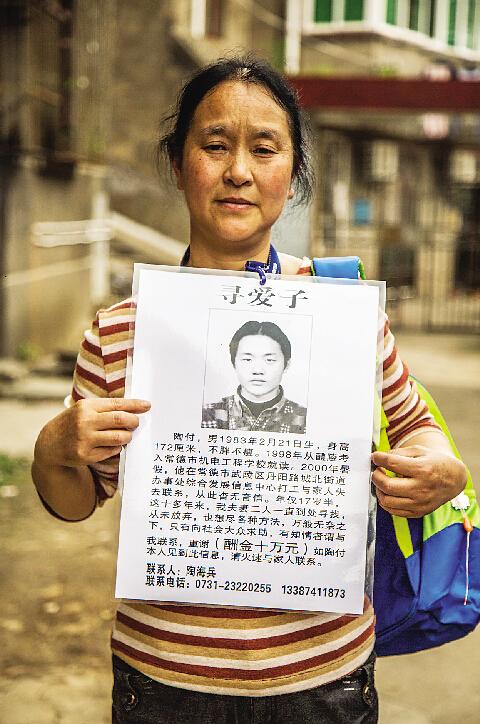 寻爱子
陶付，男1983年2月21日生，身高
172厘米，不胖不瘦。1998年从醴陵考
入常德市机电工程学校就读。2000年暑
假，他在常德市武陵区丹阳路城北街道
办事处综合发展信息中心打工与家人失
去联系，从此杳无音信。年仅17岁半，
这十多年来，我夫妻二人一直到处寻找，
从未放弃，也想尽多种方法，万般无奈之
下，只有向社会大众求助，有知情者请与
我联系，重谢（酬金十万元）如陶付
本人见到此信息，请火速与家人联系。
联系人：陶海兵
联系电话：0731-23220255 13387411873